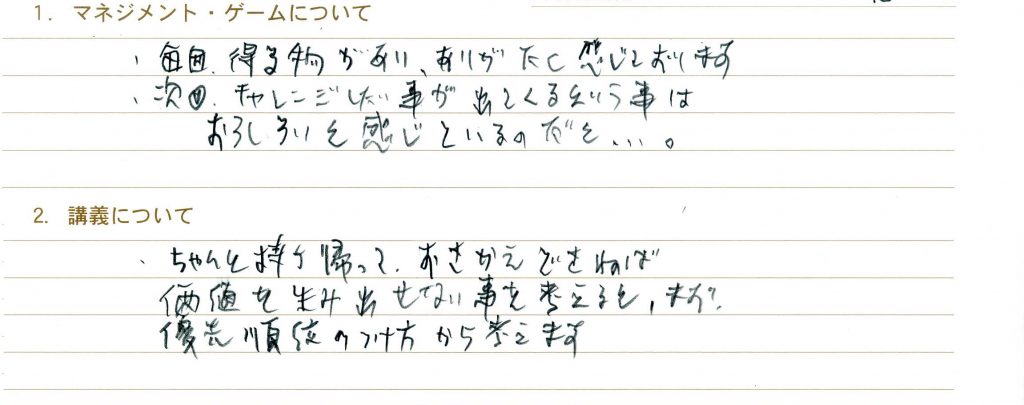 1. マネジメント・ゲームについて
・毎回、得る物があり、ありがたく感じております
・次回、チャレンジしたい事が出てくるという事は
おもしろいと感じているのだと、、、。
2. 講義について
・ちゃんと持ち帰って、おきかえできねば
価値を生み出せない事を考えると、まず、
優先順位のつけ方から考えます